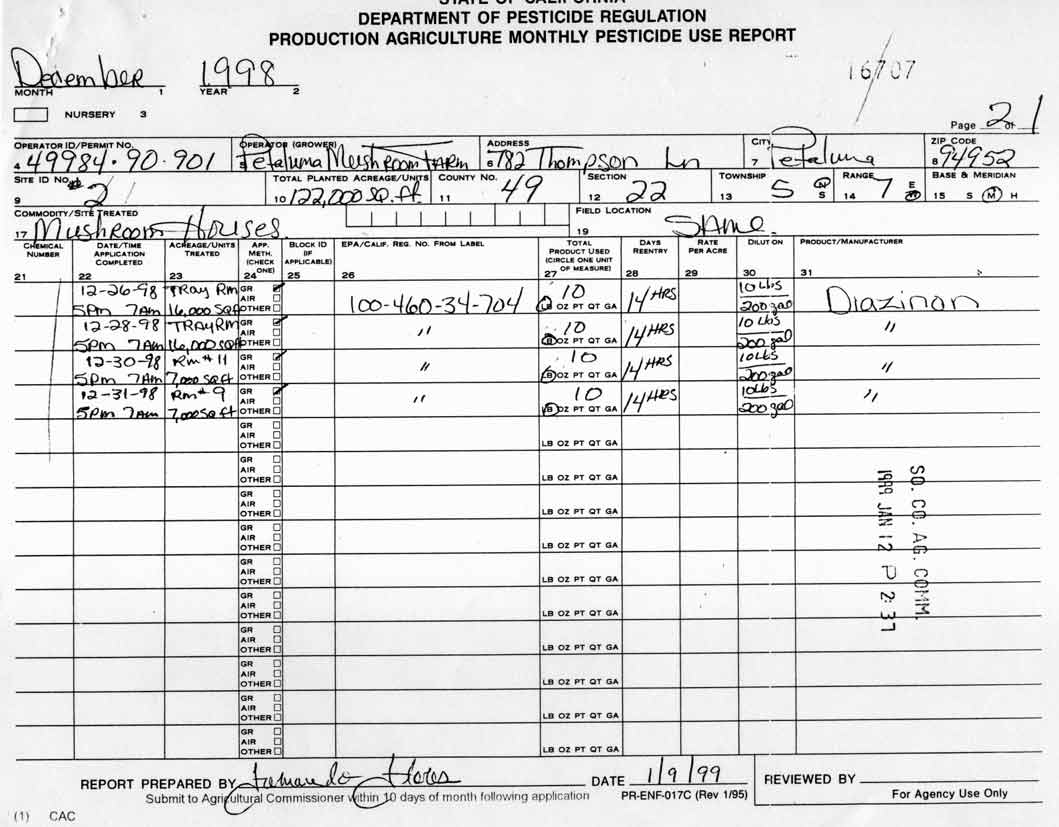 STATE OF CALIFORNIA
DEPARTMENT OF PESTICIDE REGULATION
PRODUCTION AGRICULTURE MONTHLY PESTICIDE USE REPORT
December 1998 16707
MONTH 1 YEAR 2
NURSERY 3
Page 2 of 1
OPERATOR ID/PERMIT NO. OPERATOR (GROWER) ADDRESS CITY ZIP CODE
4 49984.90.901 5 Petaluma Mushroom FARM 6 782 Thompson Ln 7 Petaluma 8 94952
SITE ID NO. TOTAL PLANTED ACREAGE/UNITS COUNTY NO. SECTION TOWNSHIP RANGE BASE & MERIDIAN
9 #2 10 122,000 SQ.ft. 11 49 12 22 13 5 N S 14 7 E W 15 S M H
COMMODITY/SITE TREATED FIELD LOCATION
17 Mushroom Houses. 19 SAme.
CHEMICAL NUMBER DATE/TIME APPLICATION COMPLETED ACREAGE/UNITS TREATED APP. METH. (CHECK ONE) BLOCK ID (IF APPLICABLE) EPA/CALIF. REG. NO. FROM LABEL TOTAL PRODUCT USED (CIRCLE ONE UNIT OF MEASURE) DAYS REENTRY RATE PER ACRE DILUTION PRODUCT/MANUFACTURER
21 22 23 24 25 26 27 28 29 30 31
12-26-98 TRay Rm GR 10 10 Lbs
AIR 100-460-34-704 14 HRS Diazinon
5Pm 7Am 16,000 SQft OTHER LB OZ PT QT GA 200 gal
12-28-98 TRAY RM GR 10 10 Lbs
AIR " 14 HRS "
5Pm 7Am 16,000 SQft OTHER LB OZ PT QT GA 200 gal
12-30-98 Rm #11 GR 10 10 Lbs
AIR " 14 HRS "
5Pm 7Am 7,000 SQ ft OTHER LB OZ PT QT GA 200 gal
12-31-98 Rm # 9 GR 10 10 Lbs
AIR " 14 HRS "
5Pm 7Am 7,000 SQ ft OTHER LB OZ PT QT GA 200 gal
GR
AIR
OTHER LB OZ PT QT GA
GR
AIR
OTHER LB OZ PT QT GA
GR
AIR
OTHER LB OZ PT QT GA
GR
AIR
OTHER LB OZ PT QT GA
GR
AIR
OTHER LB OZ PT QT GA
GR
AIR
OTHER LB OZ PT QT GA
GR
AIR
OTHER LB OZ PT QT GA
GR
AIR
OTHER LB OZ PT QT GA
GR
AIR
OTHER LB OZ PT QT GA
GR
AIR
OTHER LB OZ PT QT GA
SO. CO. AG. COMM.
1999 JAN 12 P 2:37
REPORT PREPARED BY Fernando Flores DATE 1/9/99 REVIEWED BY
Submit to Agricultural Commissioner within 10 days of month following application PR-ENF-017C (Rev 1/95) For Agency Use Only
(1) CAC